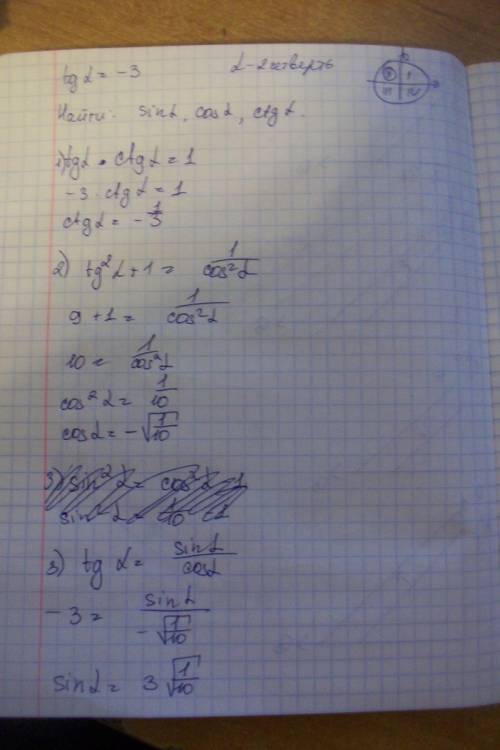 tg α = -3 α - 2 четверть
Найти: sin α, cos α, ctg α.
1) tg α • ctg α = 1
-3 · ctg α = 1
ctg α = -1/3
2) tg² α + 1 = 1/cos² α
9 + 1 = 1/cos² α
10 = 1/cos² α
cos² α = 1/10
cos α = -√(1/10)
3) tg α = sin α/cos α
-3 = sin α/-√(1/10)
sin α = 3√(1/10)